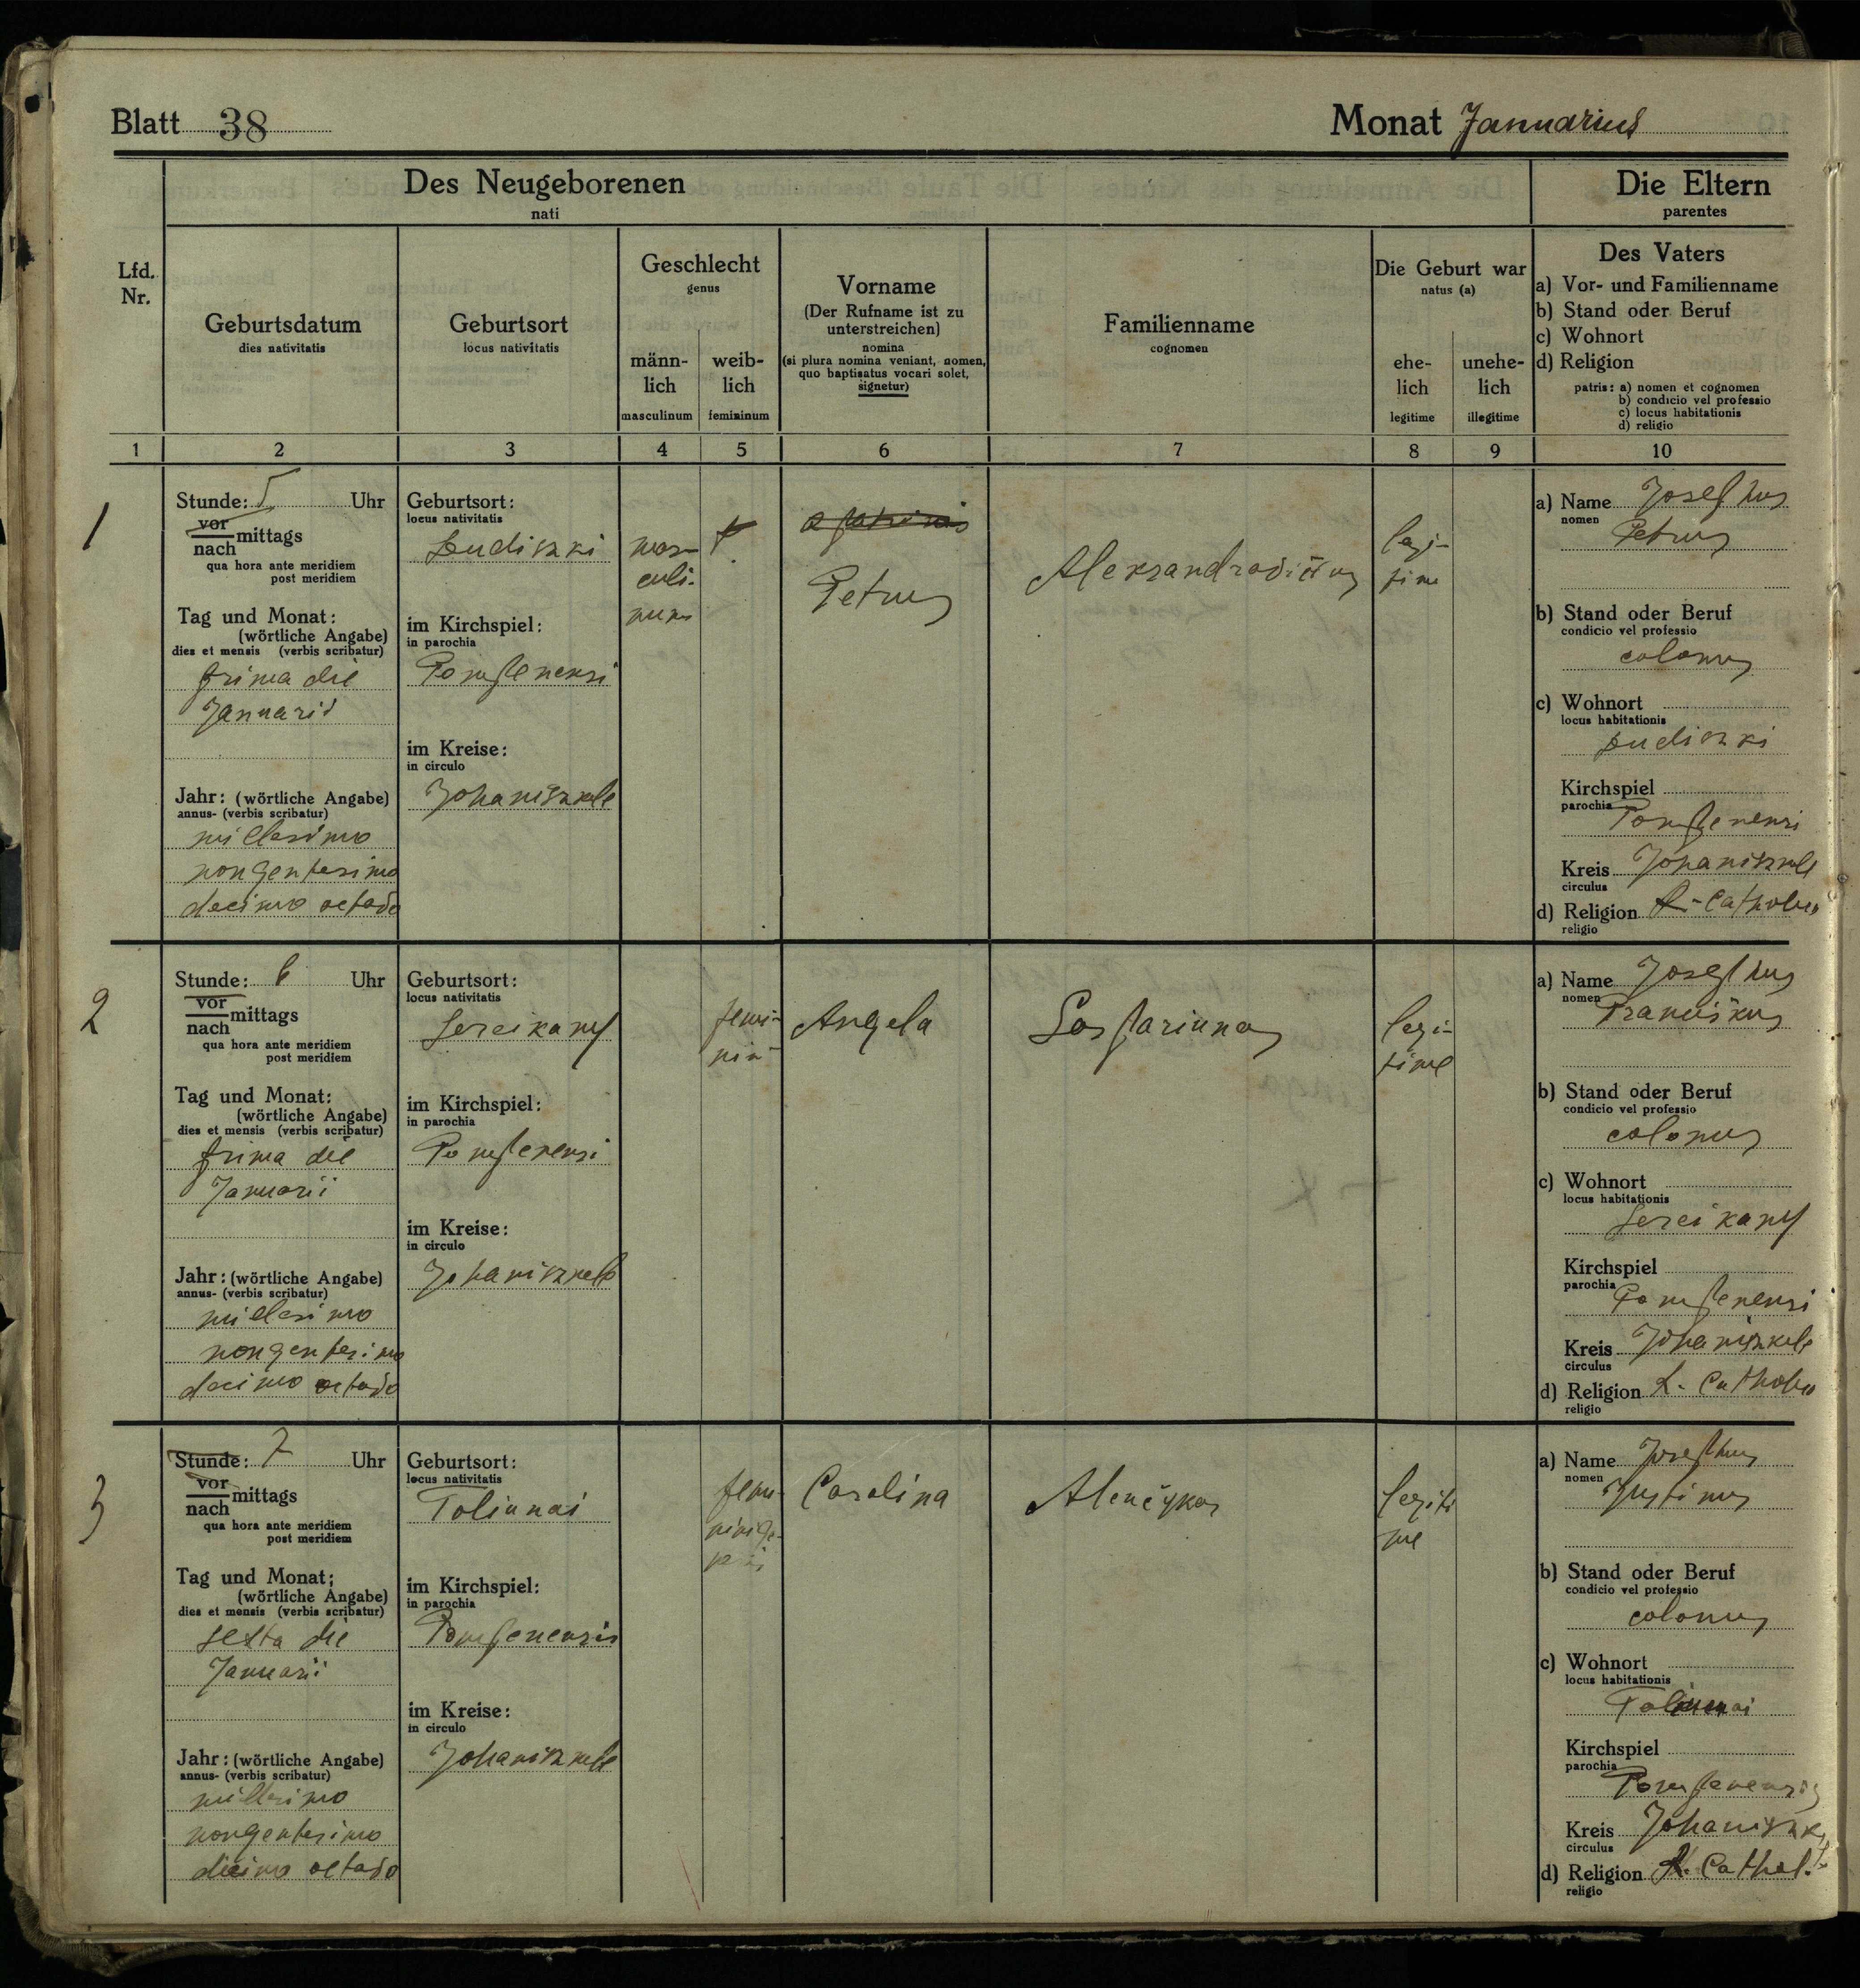 Blatt 38
Monat Januarius
Des Neugeborenen
nati
Die Eltern
parentes
Lfd. Nr.
Geburtsdatum
dies nativitatis
Geburtsort
locus nativitatis
Geschlecht
genus
männ-
lich
masculinum
weib-
lich
femininum
Vorname
(Der Rufname ist zu
unterstreichen)
nomina
(si plura nomina veniant, nomen,
quo baptisatus vocari solet,
signetur)
Familienname
cognomen
Die Geburt war
natus (a)
ehe-
lich
legitime
unehe-
lich
illegitime
Des Vaters
a) Vor- und Familienname
b) Stand oder Beruf
c) Wohnort
d) Religion
patris: a) nomen et cognomen
b) condicio vel professio
c) locus habitationis
d) religio
1 2 3 4 5 6 7 8 9 10
1
Stunde: 5 Uhr
vor
nach mittags
qua hora ante meridiem
post meridiem
Tag und Monat:
(wörtliche Angabe)
dies et mensis (verbis scribatur)
prima die
Januarii
Jahr: (wörtliche Angabe)
annus- (verbis scribatur)
millesimo
nongentesimo
decimo octavo
Geburtsort:
locus nativitatis
im Kirchspiel:
in parochia
im Kreise:
in circulo
Johaniszkele
mas-
culi-
num
Petrus
legi-
time
a) Name Josephus
nomen
Petrus
b) Stand oder Beruf
condicio vel professio
colonus
c) Wohnort
locus habitationis
Kirchspiel
parochia
Kreis Johaniszkele
circulus
d) Religion R-Catholic
religio
2
Stunde: 6 Uhr
vor
nach mittags
qua hora ante meridiem
post meridiem
Tag und Monat:
(wörtliche Angabe)
dies et mensis (verbis scribatur)
prima die
Januarii
Jahr: (wörtliche Angabe)
annus- (verbis scribatur)
millesimo
nongentesimo
decimo octavo
Geburtsort:
locus nativitatis
im Kirchspiel:
in parochia
im Kreise:
in circulo
Johaniszkele
femi-
nin
Angela
legi-
time
a) Name Josephus
nomen
b) Stand oder Beruf
condicio vel professio
colonus
c) Wohnort
locus habitationis
Kirchspiel
parochia
Kreis Johaniszkele
circulus
d) Religion R. Catholic
religio
3
Stunde: 7 Uhr
vor
nach mittags
qua hora ante meridiem
post meridiem
Tag und Monat:
(wörtliche Angabe)
dies et mensis (verbis scribatur)
sexta die
Januarii
Jahr: (wörtliche Angabe)
annus- (verbis scribatur)
millesimo
nongentesimo
decimo octavo
Geburtsort:
locus nativitatis
Toliunai
im Kirchspiel:
in parochia
im Kreise:
in circulo
Johaniszkele
Carolina
Alenčykas
legiti
me
a) Name Josephus
nomen
Justinus
b) Stand oder Beruf
condicio vel professio
colonus
c) Wohnort
locus habitationis
Toliunai
Kirchspiel
parochia
Kreis
circulus
d) Religion R. Cathol.
religio